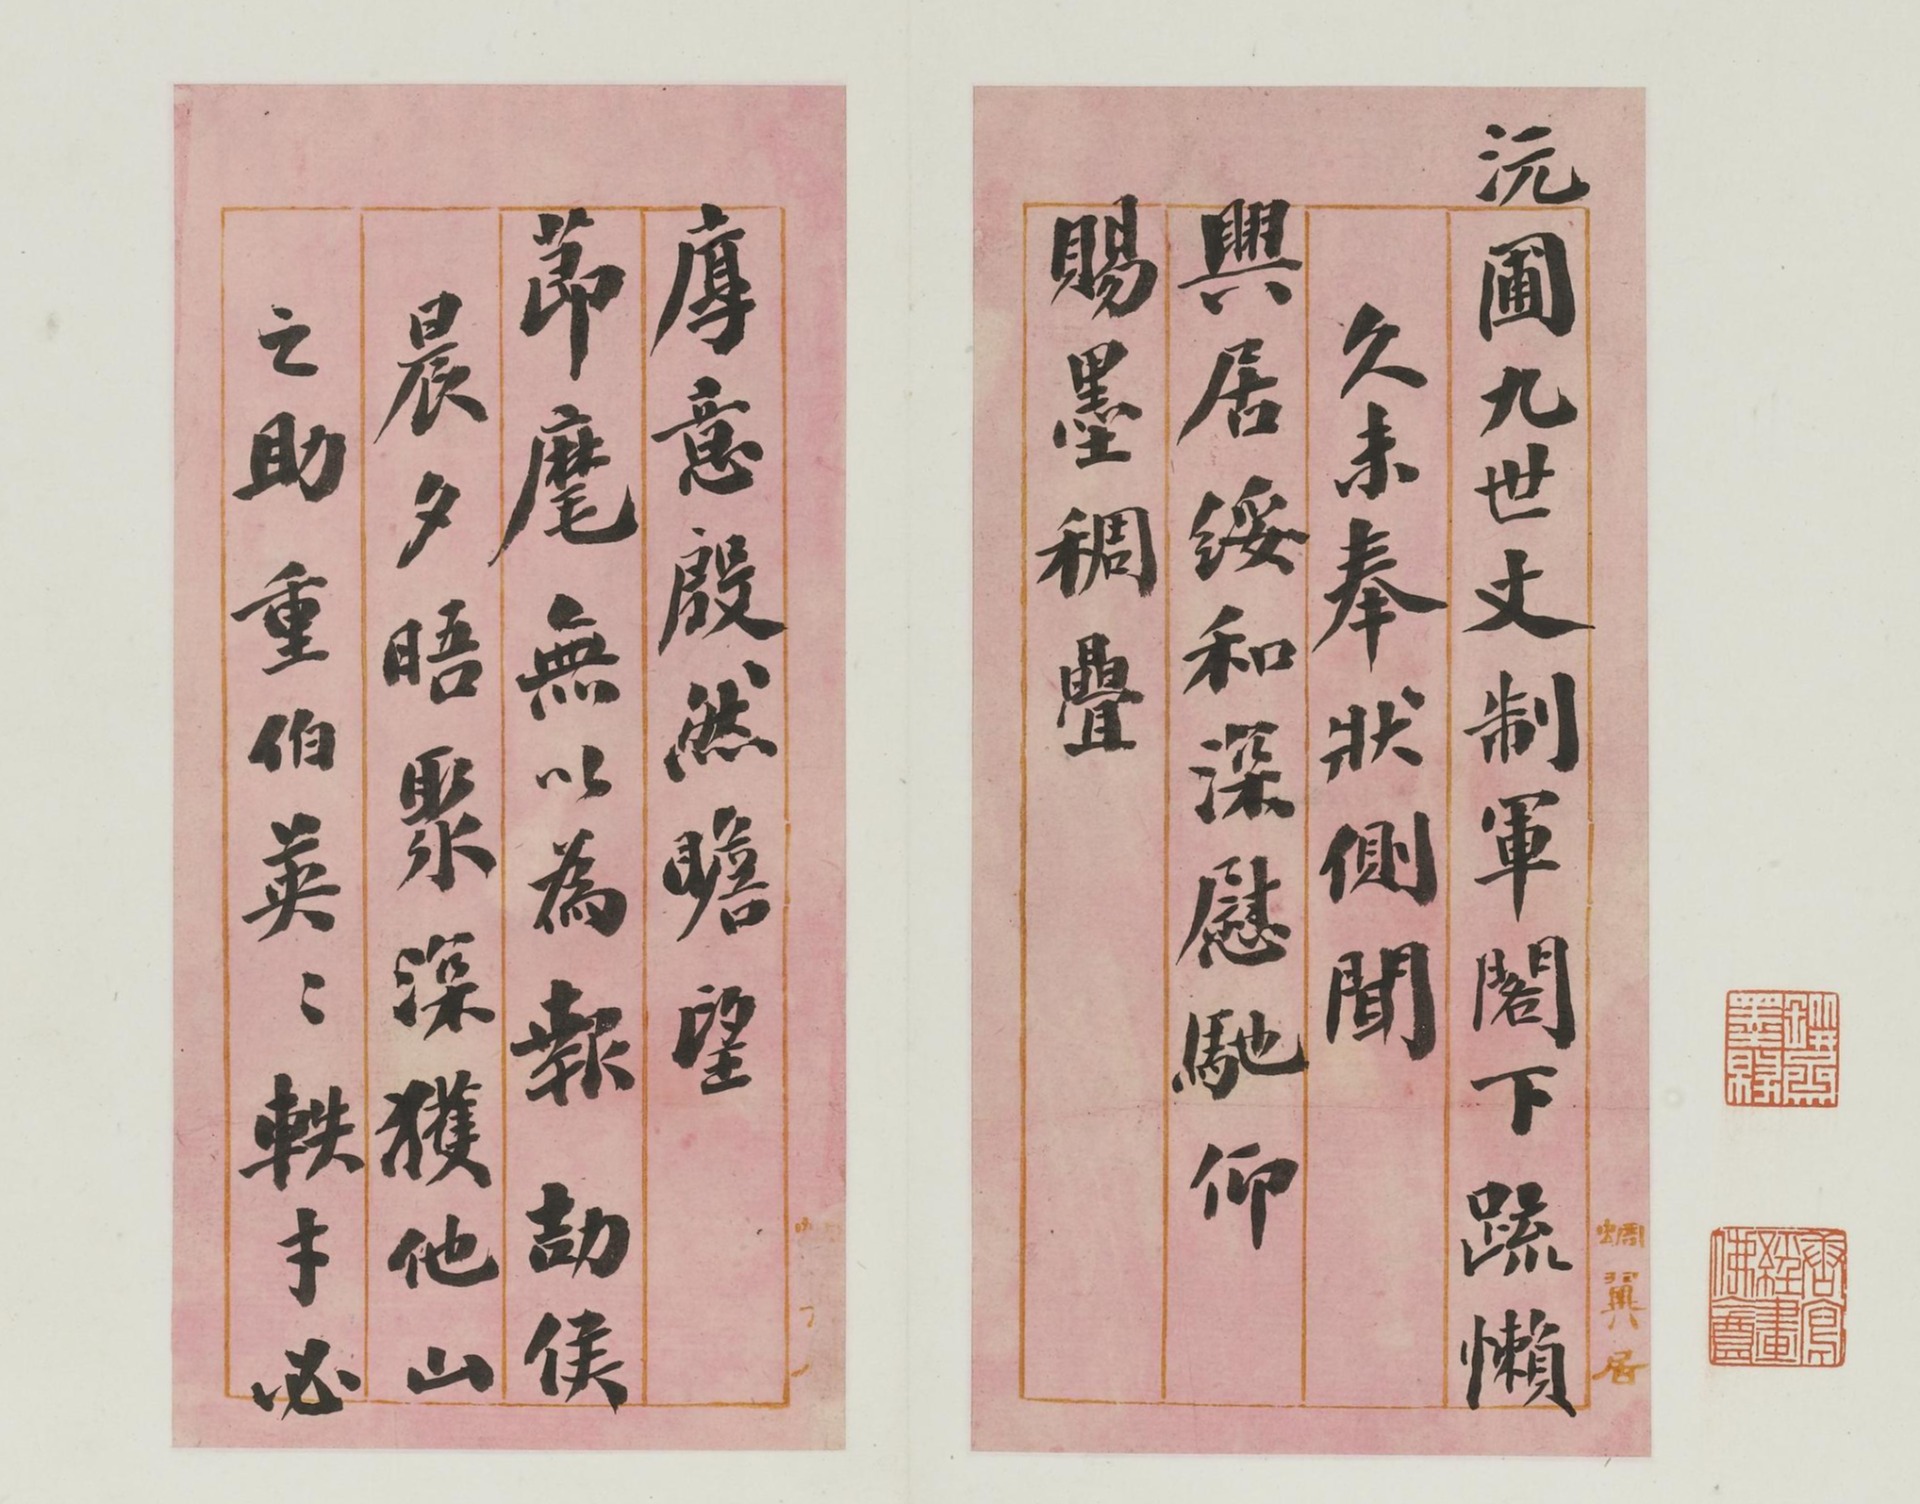 沅圃九世丈制軍閣下䟽懶
久未奉狀側聞
興居綏和深慰馳仰
賜墨稠疊
蜩翼居
厚意殷然瞻望
節麾無以為報劼侯
晨夕晤聚深獲他山
之助重伯英〻軼才必